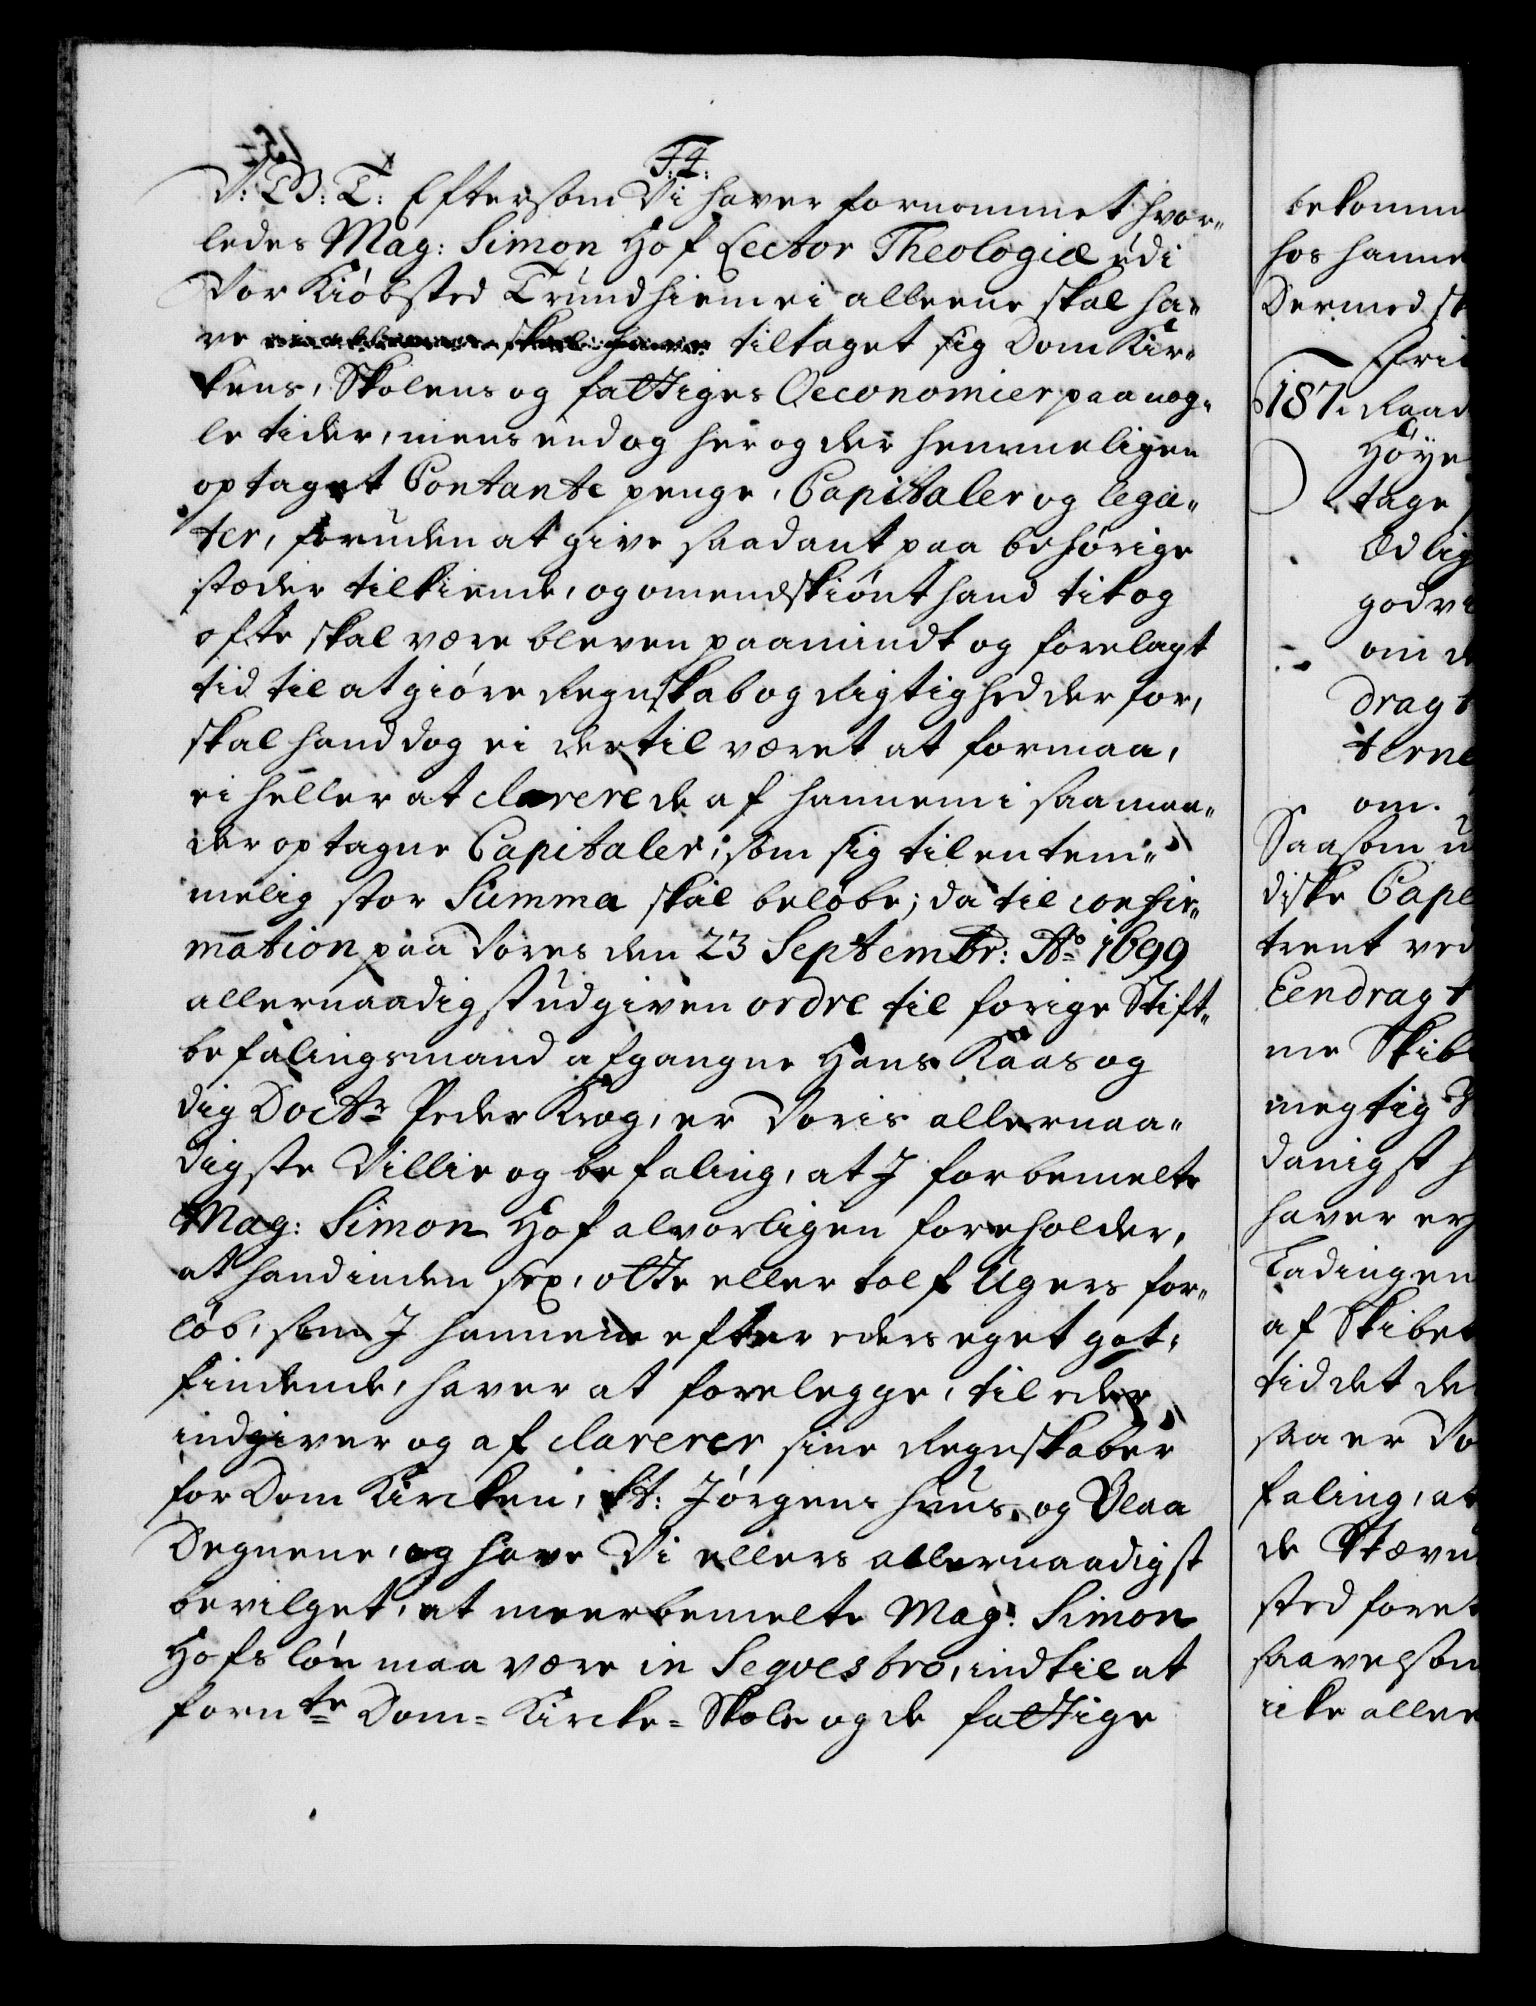 F: 4:
V: G: T: Eftersom Vi haver fornemmet hvor„
ledes Mag: Simon Hof Lector Theologiæ udi
Vor Kiøbsted Trundhiem ei alleene skal ha„
ve tiltaget sig Dom Kir„
kens, Skolens og fattiges Oeconomier paa nog„
le tider, mens end og her og der hemmeligen
optaget Contante penge, Capitaler og lega„
ter, foruden at give saadant paa behørige
stæder tilkiende, og omendskiønt hand tit og
ofte skal være bleven paamindt og forelagt
tid til at giøre Regnskab og Rigtighed derfor,
skal hand dog ei dertil været at formaa,
ei heller at clarere de af hannem i saa maa„
der optagne Capitaler, som sig til en tem„
melig stor Summa skal beløbe; da til confir„
mation paa Vores den 23 Septembr: Ao 1699
allernaadigst udgiven ordre til forige Stift„
befalingsmand afgangne Hans Kaas og
dig Doctr Peder Krog, er Voris allernaa„
digste Villie og befaling, at J forbemelte
Mag: Simon Hof alvorligen foreholder,
at hand inden sex, otte eller tolf Ugers for„
løb, som J hannem efter eders eget got„
findende, haver at forelegge, til eder
indgiver og af clarerer sine Regnskaber
for Dom Kircken, St: Jørgens Huus, og Vlaa
Degnene, og have Vi ellers allernaadigst
bevilget, at meerbemelte Mag: Simon
Hofs løn maa være in Seqvestro, indtil at
fornte Dom= Kircke= Skole og de fattige
bekomm
hos hanne
Dermed sk
Frid
187. Raad
Høye
tage
Edlig
godvi
om d
dragt
terne
om.
Saasom u
diske Cape
trent ved
Eendragt
me Skib
megtig
danigst h
haver er
Ladingen
af Skibet
tid det de
saa er Vo
faling, at
de Stævn
sted foret
saavelsom
icke allee